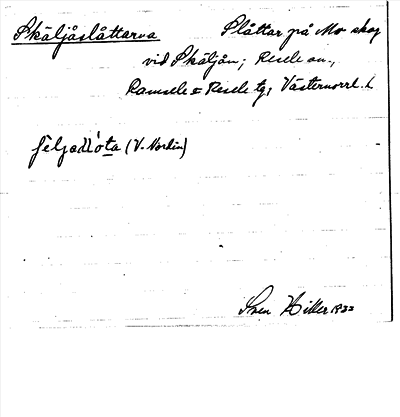 Skäljåslåttarna Slåttar på Mo skog
vid Skäljån; Resele sn.,
Ramsele o Resele tg, Västernorrl. l.
(V. Nordin)
Sven Hiller 1933